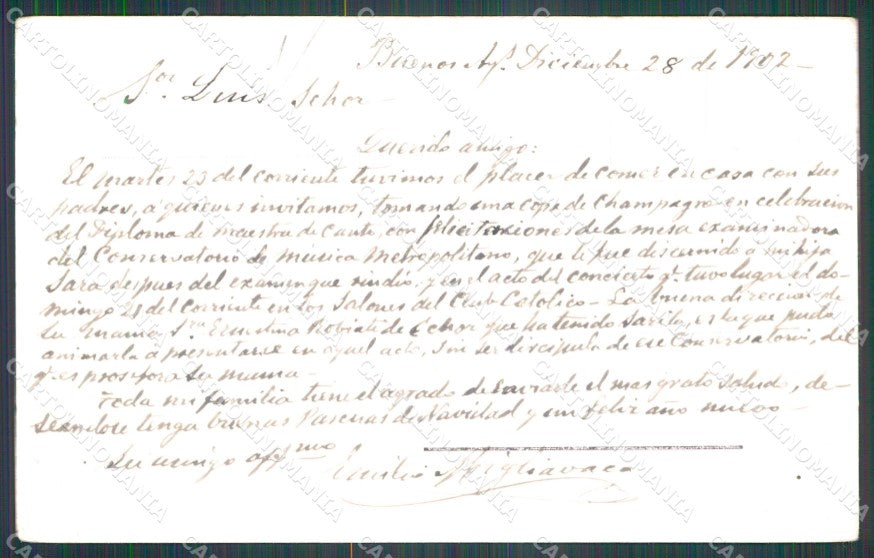 Buenos Ays. Diciembre 28 de 1902 -
Sor. Luis Schor -
Querido amigo:
El martes 23 del corriente tuvimos el placer de comer en casa con sus
padres, a quienes invitamos, tomando una copa de Champagne en celebracion
del Diploma de maestra de canto, con felicitaciones de la mesa examinadora
del Conservatorio de música Metropolitano, que le fue discernido a mi hija
Sara despues del examen que rindió, y en el acto del concierto qe. tuvo lugar el do-
mingo 21 del corriente en los Salones del Club Católico - La buena direccion de
su mamá Sra. Ernestina de Schor que ha tenido Sarita, es la que pudo
animarla a presentarse en aquel acto, sin ser discipula de ese Conservatorio, del
qe. es profesora su mamá -
Toda mi familia tiene el agrado de enviarle el mas grato saludo, de-
seandole tenga buenas Pascuas de Navidad y un feliz año nuevo -
Su amigo affmo
Emilio